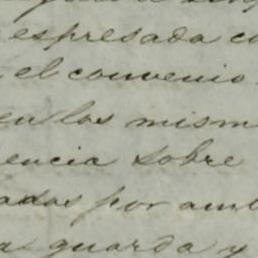 espresada co
el convenio
en los mism
encia sobre
adas por amb
guarda y